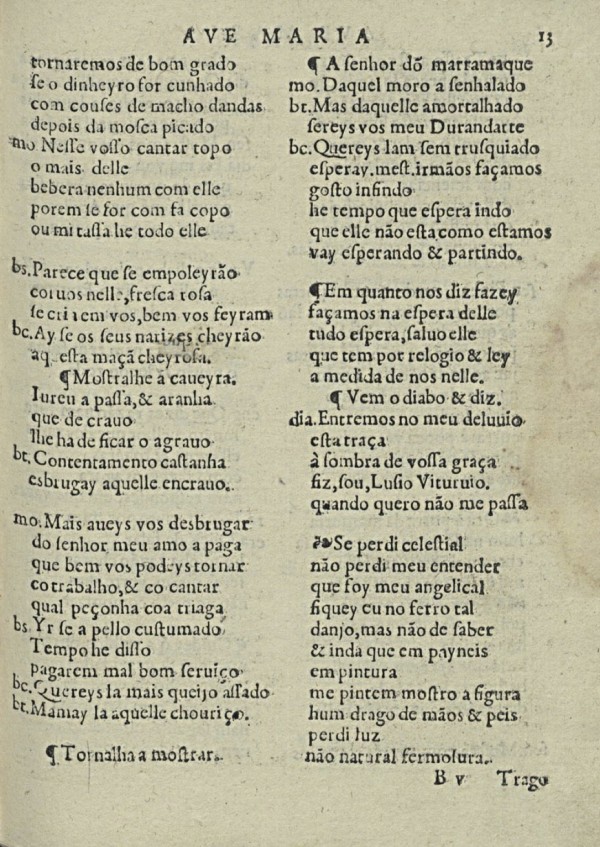 AVE MARIA 13
tornaremos de bom grado
se o dinheyro for cunhado
com couses de macho dandas
depois da mosca picado
mo Nesse vosso cantar topo
o mais delle
bebera nenhum com elle
porem se for com fa copo
ou mi tassa he todo elle
bs. Parece que se empoleyrão
coruos nelle, fresca rosa
se crirem vos, bem vos feyram
bc. Ay se os seus narizes cheyrão
aq esta maçã cheyrosa.
¶ Mostralhe a caueyra.
Iureu a passa, & aranha
que de crauo
lhe ha de ficar o agrauo
bt. Contentamento castanha
esbrugay aquelle encrauo.
mo. Mais aueys vos desbrugar
do senhor meu amo a paga
que bem vos podeys tornar
co trabalho, & co cantar
qual peçonha coa triaga
bs. Yr se a pello custumado
Tempo he disso
pagarem mal bom seruiço
bc. Quereys la mais queijo assado
bt. Mamay la aquelle chouriço.
¶ Tornalha a mostrar.
¶ A senhor dõ marramaque
mo. Daquel moro a senhalado
bt. Mas daquelle amortalhado
sereys vos meu Durandarte
bc. Quereys lam sem trusquiado
esperay. mest. irmãos façamos
gosto infindo
he tempo que espera indo
que elle não esta, como estamos
vay esperando & partindo.
¶ Em quanto nos diz fazey
façamos na espera delle
tudo espera, saluo elle
que tem por relogio & ley
a medida de nos nelle.
¶ Vem o diabo & diz.
dia. Entremos no meu deluuio
esta traça
à sombra de vossa graça
fiz, sou, Lusio Vituruio.
quando quero não me passa
❧ Se perdi celestial
não perdi meu entender
que foy meu angelical
fiquey eu no ferro tal
danjo, mas não de saber
& inda que em payneis
em pintura
me pintem mostro a figura
hum drago de mãos & peis
perdi luz
não natural fermosura.
B v Trago